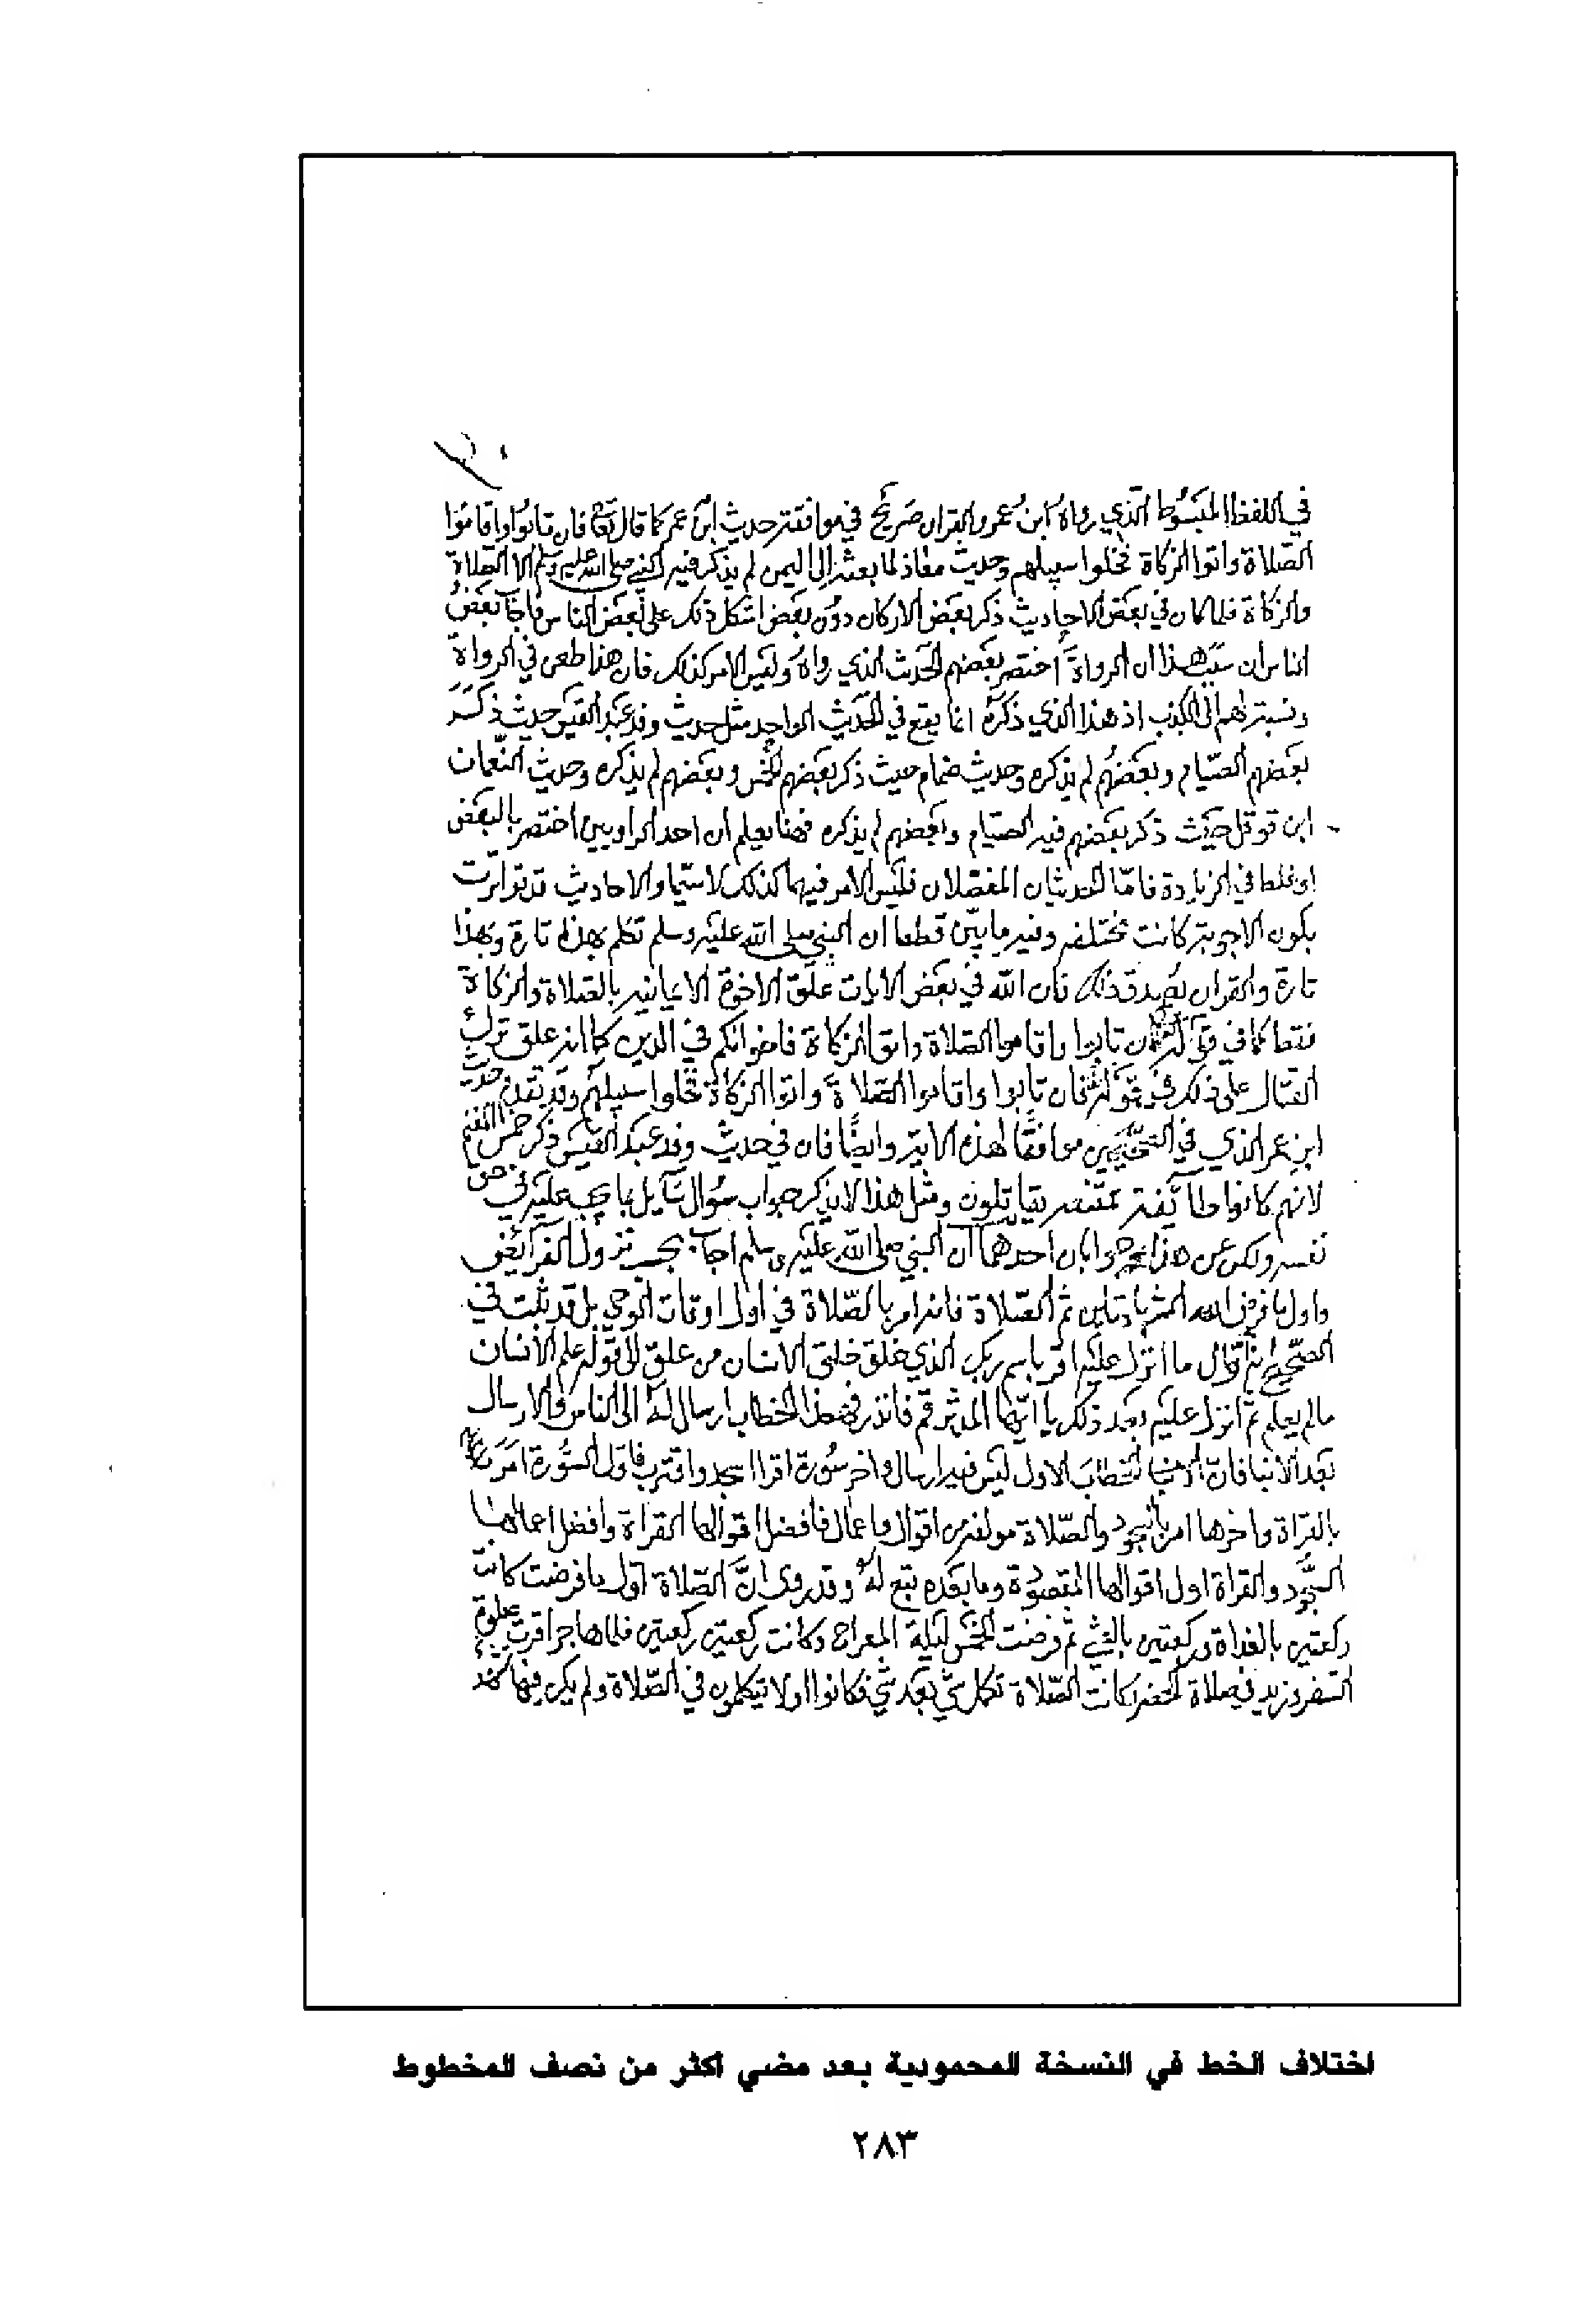 في اللفظ المبسوط الذي رواه ابن عمر والقران صريح في موافقة حديث ابن عمر كما قال تعا فان تابوا واقاموا
الصلاة واتوا الزكاة فخلوا سبيلهم وحديث معاذ لما بعثه الى اليمن لم يذكر فيه النبي صلى الله عليه وسلم الا الصلاة
والزكاة فلما كان في بعض الاحاديث ذكر بعض الاركان دون بعض اشكل ذلك على بعض الناس فاجاب بعض
الناس ان سبب هذا ان الرواة اختصر بعضهم الحديث الذي رواه وليس الامر كذلك فان هذا طعن في الرواة
ونسبة لهم الى الكذب اذ هذا الذي ذكره انما يقع في الحديث الواحد مثل حديث وفد عبد القيس حيث ذكر
بعضهم الصيام وبعضهم لم يذكره وحديث ضمام حيث ذكر بعضهم الخمس وبعضهم لم يذكره وحديث النعمان
ابن قوقل حيث ذكر بعضهم فيه الصيام وبعضهم لم يذكره فهنا يعلم ان احد الراويين اختصر بالبعض
او غلط في الزيادة فاما الحديثان المفصلان فليس الامر فيهما كذلك لا سيما والاحاديث قد تواترت
بكون الاجوبة كانت مختلفة وفيه ما يبين قطعا ان النبي صلى الله عليه وسلم تكلم بهذا تارة وبهذا
تارة والقران يصدق ذلك فان الله في بعض الايات علق الاخوة الايمانية بالصلاة والزكاة
فقط كما في قوله فان تابوا واقاموا الصلاة واتوا الزكاة فاخوانكم في الدين كما انه علق ترك
القتال على ذلك في قوله فان تابوا واقاموا الصلاة واتوا الزكاة فخلوا سبيلهم وقد تقدم حديث
ابن عمر الذي في الصحيحين موافقا لهذه الاية وايضا فان في حديث وفد عبد القيس ذكر خمس المغنم
لانهم كانوا طائفة ممتنعة يقاتلون ومثل هذا لا يذكر جواب سؤال سايل بما يجب عليه في حق
نفسه ولكن عن هذا جوابان احدهما ان النبي صلى الله عليه وسلم اجاب بحسب نزول الفرائض
واول ما فرض الله الشهادتين ثم الصلاة فانه امر بالصلاة في اول اوقات الوحي بل قد ثبت في
الصحيح ان اول ما انزل عليه اقرا باسم ربك الذي خلق خلق الانسان من علق الى قوله علم الانسان
مالم يعلم ثم انزل عليه بعد ذلك يا ايها المدثر قم فانذر فهذا الخطاب ارسال له الى الناس والارسال
بعد الانبا فان الخطاب الاول ليس فيه ارسال واخر سورة اقرا اسجد واقترب فاول السورة امر
بالقراة واخرها امر بالسجود والصلاة مولفة من اقوال واعمال فافضل اقوالها القراة وافضل اعمالها
السجود والقراة اول اقوالها المقصودة وما بعده تبع له وقد روى ان الصلاة اول ما فرضت كانت
ركعتين بالغداة وركعتين بالعشي ثم فرضت الخمس ليلة المعراج وكانت ركعتين ركعتين فلما هاجر اقرت صلوة
السفر وزيد في صلاة الحضر وكانت الصلاة تكمل شي بعد شي فكانوا اولا يتكلمون في الصلاة ولم يكن فيها تشهد
اختلاف الخط في النسخة المحمودية بعد مضي أكثر من نصف المخطوط
٢٨٣